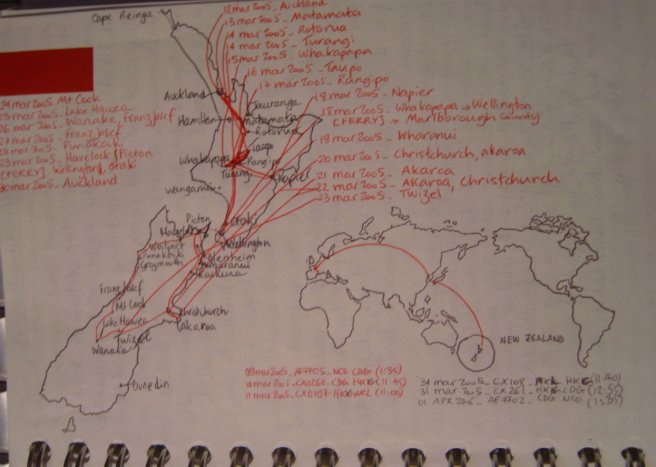 Cape Reinga
12 mar 2005_ Auckland
13 mar 2005_ Matamata
14 mar 2005_ Rotorua
14 mar 2005_ Turangi
15 mar 2005_ Whakapapa
16 mar 2005_ Taupo
17 mar 2005_ Rangipo
18 mar 2005_ Napier
18 mar 2005_ Whakapapa → Wellington
[FERRY] → Marlborough County
19 mar 2005_ Wharanui
20 mar 2005_ Christchurch, akaroa
21 mar 2005_ Akaroa
22 mar 2005_ Akaroa, Christchurch
23 mar 2005_ Twizel
24 mar 2005_ Mt Cook
25 mar 2005_ Lake Hawea
26 mar 2005_ Wanaka, Franz Josef
27 mar 2005_ Franz Josef
28 mar 2005_
29 mar 2005_ Havelock [Picton
[FERRY] Wellington], otaki
30 mar 2005_ Auckland
Auckland
Tauranga
Hamilton
Matamata
Rotorua
Taupo
Whakapapa
Rangipo
Turangi
Napier
Wanganui
Otaki
Picton
Wellington
Westport
Blenheim
Punakaiki
Wharanui
Greymouth
Kaikura
Franz Josef
Mt Cook
Christchurch
akaroa
Lake Hawea
Twizel
Wanaka
Dunedin
NEW ZEALAND
CDG (1:35)
CX0260_ CDG HKG (11:45)
11 mar 2005_ CX0107_ HKG AKL (11:00)
31 mar 2005_ CX108_ HKG (11:40)
31 mar 2005_ CX261_ HKG CDG
01 APR 2005_ AF7702_ CDG NCE